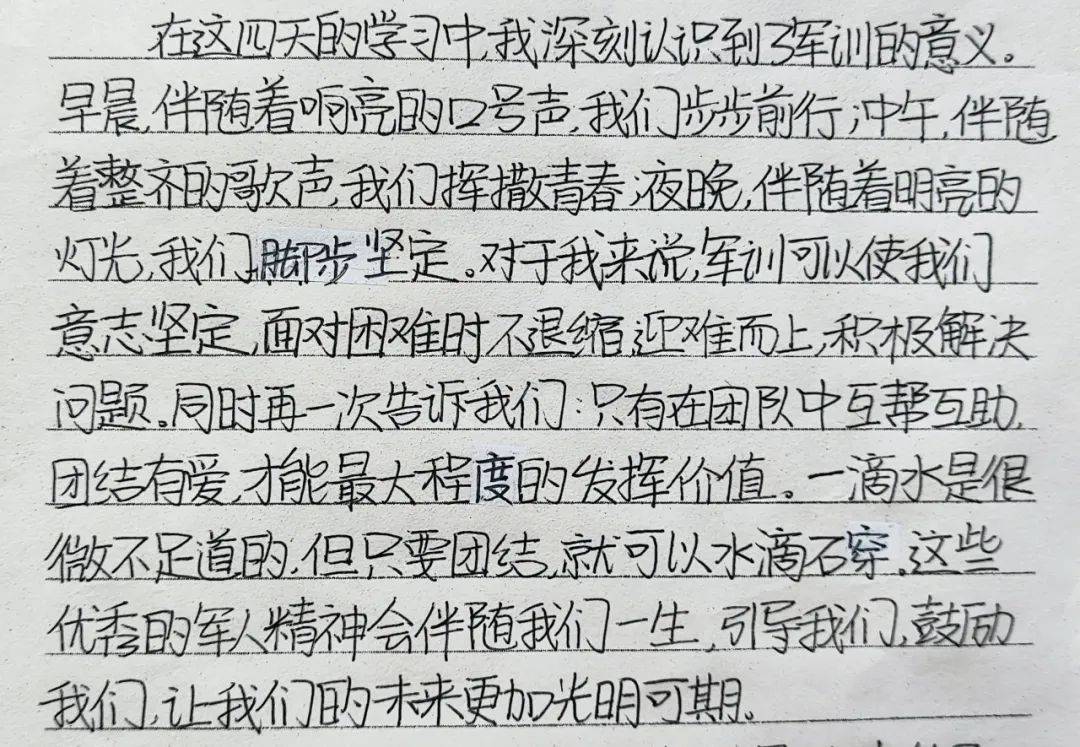 在这四天的学习中,我深刻认识到了军训的意义。
早晨,伴随着响亮的口号声,我们步步前行;冲午,伴随
着整齐的歌声,我们挥撒青春;夜晚,伴随着明亮的
灯光,我们脚步坚定。对于我来说,军训可以使我们
意志坚定,面对困难时不退缩,迎难而上,积极解决
问题。同时再一次告诉我们:只有在团队中互帮互助,
团结有爱,才能最大程度的发挥价值。一滴水是很
微不足道的,但只要团结,就可以水滴石穿。这些
优秀的军人精神会伴随我们一生,引导我们,鼓励
我们,让我们的未来更加光明可期。